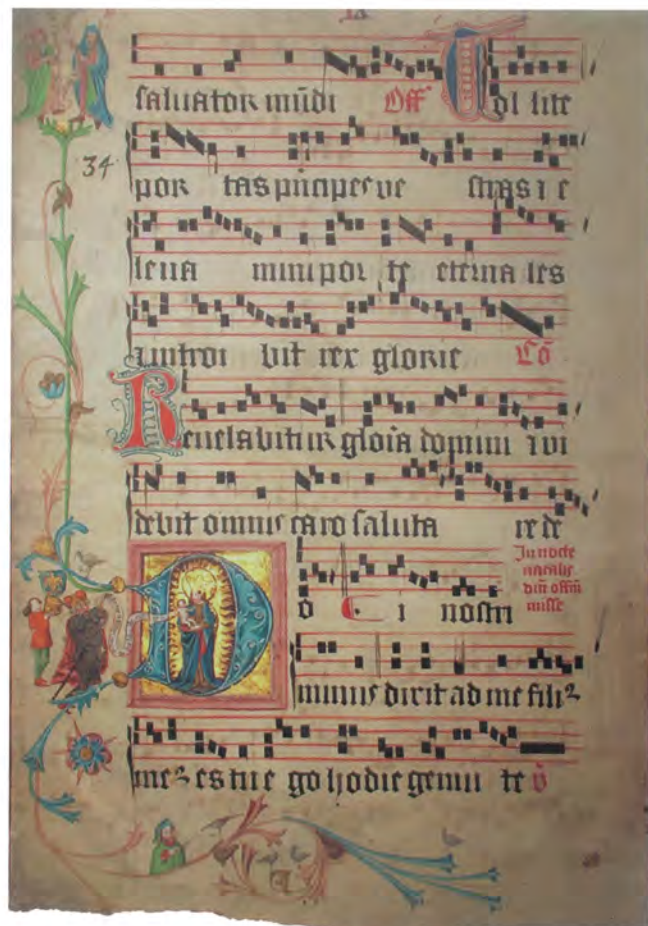 saluator mūdi Off Tol lite
34
por tas pncipes ve stras i e
leua mini por te eterna les
z introi bit rex glorie Cō
Reuelabitur gloīa domini z vi
debit omnis caro saluta re de
o i nostri
In nocte
natalis
dm̄ offm̄
misse
Dominus dixit ad me filiꝰ
meꝰ es tu e go hodie genui te v̄